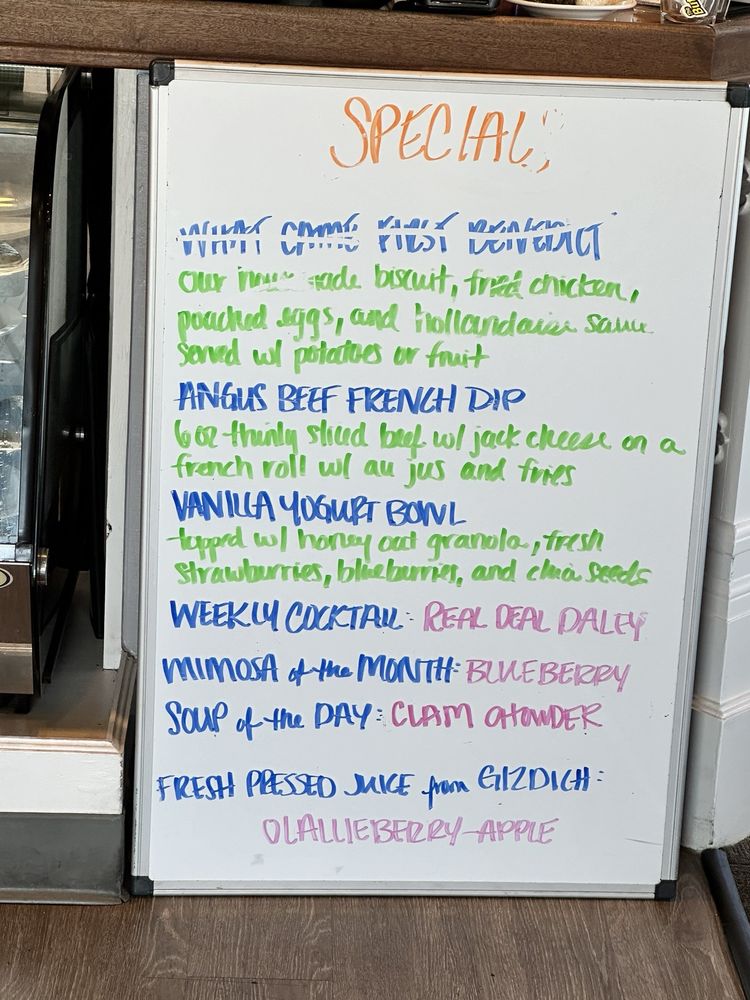 SPECIALS
WHAT CAME FIRST BENEDICT
our housemade biscuit, fried chicken,
poached eggs, and hollandaise sauce
served w/ potatoes or fruit
ANGUS BEEF FRENCH DIP
6 oz thinly sliced beef w/ jack cheese on a
french roll w/ au jus and fries
VANILLA YOGURT BOWL
topped w/ honey oat granola, fresh
strawberries, blueberries, and chia seeds
WEEKLY COCKTAIL: REAL DEAL DALEY
MIMOSA of the MONTH: BLUEBERRY
SOUP of the DAY: CLAM CHOWDER
FRESH PRESSED JUICE from GIZDICH:
OLALLIEBERRY-APPLE